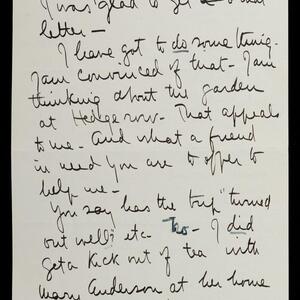 I was glad to get
letter —
I have got to do something.
I am convinced of that — I am
thinking about the garden
at Hedgerow — That appeals
to me — And what a friend
in need you are to offer to
help me —
You say has the trip "turned
out well" etc — No — I did
get a kick out of tea with
Mary Anderson at her home